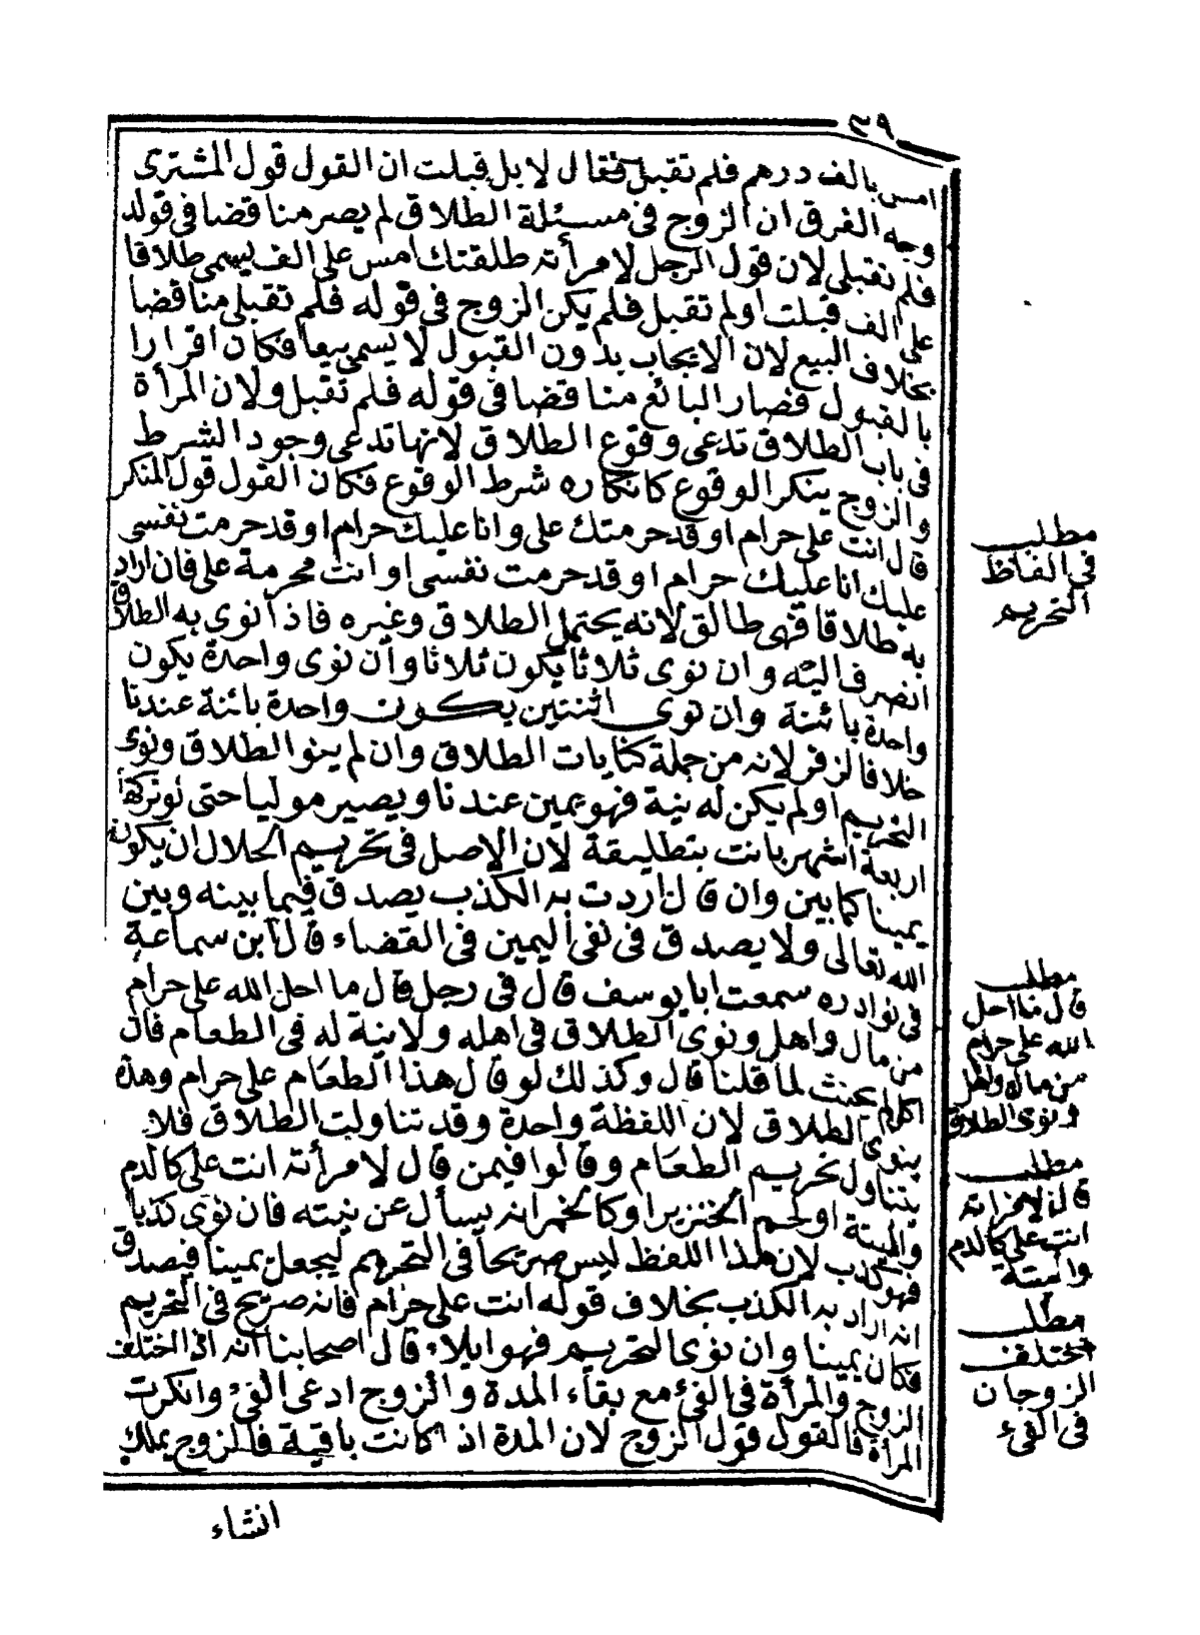 ٣٩
امس بالف درهم فلم تقبل فقال لا بل قبلت ان القول قول المشترى
وجه الفرق ان الزوج فى مسئلة الطلاق لم يصر مناقضا فى قوله
فلم تقبلى لان قول الرجل لامرأته طلقتك امس على الف يسمى طلاقا
على الف قبلت اولم تقبل فلم يكن الزوج فى قوله فلم تقبلى مناقضا
بخلاف البيع لان الايجاب بدون القبول لا يسمى بيعا فكان اقرارا
بالقبول فصار البائع مناقضا فى قوله فلم تقبل ولان المرأة
فى باب الطلاق تدعى وقوع الطلاق لانها تدعى وجود الشرط
والزوج ينكر الوقوع كانكاره شرط الوقوع فكان القول قول المنكر
قال انت على حرام او قد حرمتك على وانا عليك حرام او قد حرمت نفسى
عليك انا عليك حرام او قد حرمت نفسى او انت محرمة على فان اراد
به طلاقا فهى طالق لانه يحتمل الطلاق وغيره فاذا نوى به الطلاق
انصرف اليه وان نوى ثلاثا يكون ثلاثا وان نوى واحدة يكون
واحدة بائنة وان نوى اثنتين يكون واحدة بائنة عندنا
خلافا لزفر لانه من جملة كنايات الطلاق وان لم ينو الطلاق ونوى
التحريم اولم يكن له نية فهو يمين عندنا ويصير موليا حتى لو تركها
اربعة اشهر بانت بتطليقة لان الاصل فى تحريم الحلال ان يكون
يمينا كما بين وان قال اردت به الكذب يصدق فيما بينه وبين
الله تعالى ولا يصدق فى نفى اليمين فى القضاء قال ابن سماعة
فى نوادره سمعت ابا يوسف قال فى رجل قال ما احل الله على حرام
من مال واهل ونوى الطلاق فى اهله ولا نية له فى الطعام فان
اكل لم يحنث لما قلنا قال وكذلك لو قال هذا الطعام على حرام وهذه
ينوى الطلاق لان اللفظة واحدة وقد تناولت الطلاق فلا
يتناول تحريم الطعام وقالوا فيمن قال لامرأته انت على كالدم
والميتة اولحم الخنزير او كالخمر انه يسأل عن نيته فان نوى كذبا
فهو كذب لان هذا اللفظ ليس صريحا فى التحريم ليجعل يمينا فيصدق
انه اراد به الكذب بخلاف قوله انت على حرام فانه صريح فى التحريم
فكان يمينا وان نوى التحريم فهو ايلاء قال اصحابنا انه اذا اختلف
الزوج والمرأة فى الفئ مع بقاء المدة والزوج ادعى الفئ وانكرت
المرأة فالقول قول الزوج لان المدة اذا كانت باقية فالزوج يملك
انشاء
مطلب
فى الفاظ
التحريم
مطلب
قال ما احل
الله على حرام
من مال واهل
ونوى الطلاق
مطلب
قال لامرأته
انت على كالدم
والميتة
مطلب
اختلف
الزوجان
فى الفئ